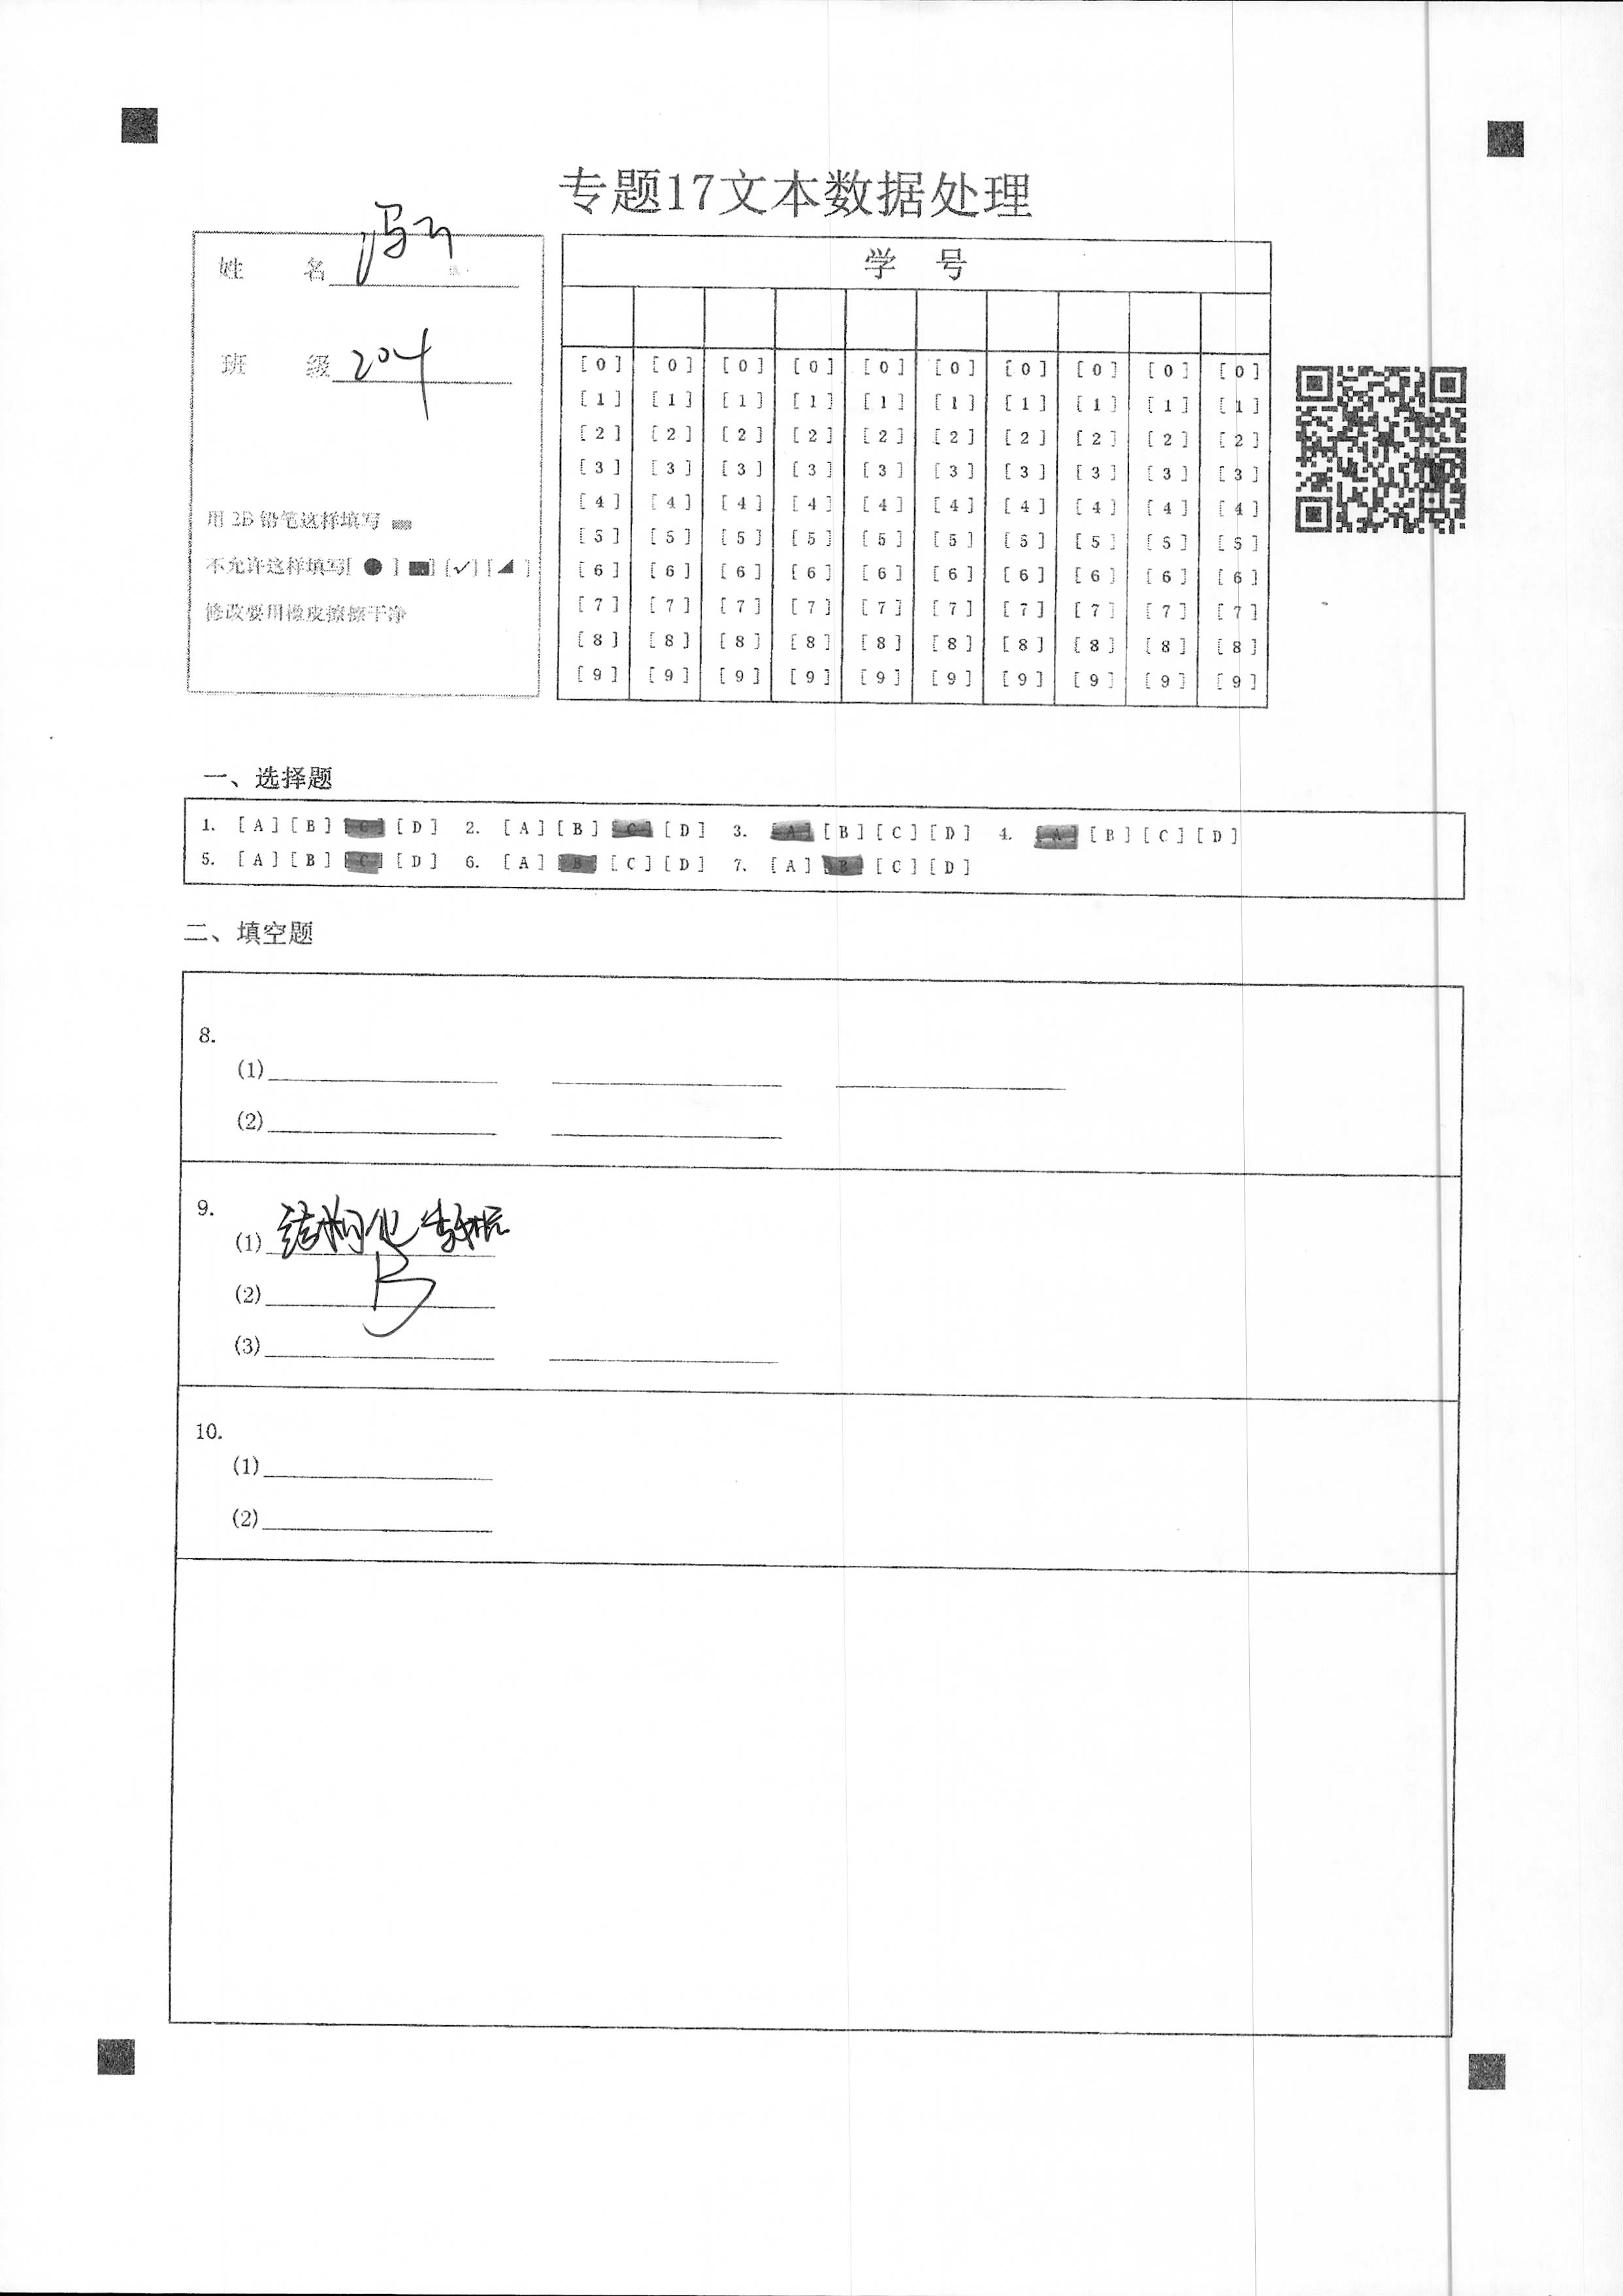 专题17文本数据处理
姓 名 冯
班 级 204
用 2B 铅笔这样填写
不允许这样填写[ ● ] [✓] [ ]
修改要用橡皮擦擦干净
学 号
[0] [0] [0] [0] [0] [0] [0] [0] [0] [0]
[1] [1] [1] [1] [1] [1] [1] [1] [1] [1]
[2] [2] [2] [2] [2] [2] [2] [2] [2] [2]
[3] [3] [3] [3] [3] [3] [3] [3] [3] [3]
[4] [4] [4] [4] [4] [4] [4] [4] [4] [4]
[5] [5] [5] [5] [5] [5] [5] [5] [5] [5]
[6] [6] [6] [6] [6] [6] [6] [6] [6] [6]
[7] [7] [7] [7] [7] [7] [7] [7] [7] [7]
[8] [8] [8] [8] [8] [8] [8] [8] [8] [8]
[9] [9] [9] [9] [9] [9] [9] [9] [9] [9]
一、选择题
1. [A] [B] [C] [D] 2. [A] [B] [C] [D] 3. [A] [B] [C] [D] 4. [A] [B] [C] [D]
5. [A] [B] [C] [D] 6. [A] [B] [C] [D] 7. [A] [B] [C] [D]
二、填空题
8.
(1)
(2)
9.
(1) 结构化数据
(2) B
(3)
10.
(1)
(2)